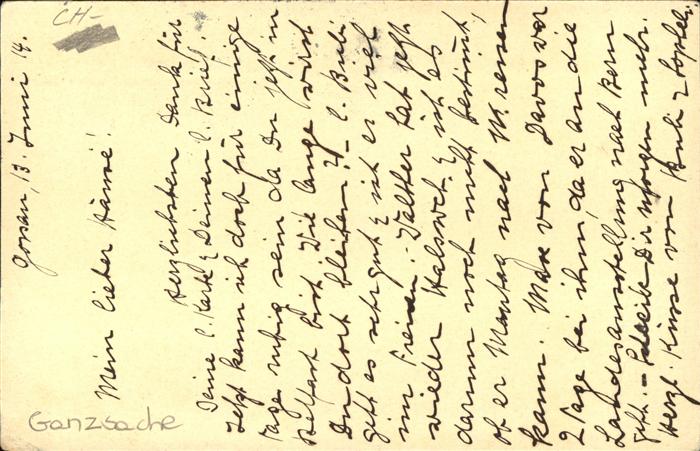 CH-
Gossau, 13. Juni 14.
Mein lieber Hansi!
Herzlichsten Dank für
Deine l. Karte & Deinen l. Brief
Jetzt kann ich doch für einige
Tage ruhig sein da Du jetzt in
Belfast bist. Wie lange wirst
Du dort bleiben? - l. Bubi
geht es sehr gut & ist er viel
im Freien. Walther hat jetzt
wieder Halsweh & ist es
darum noch nicht bestimmt,
ob er Montag nach M. reisen
kann. Max von Davos war
2 Tage bei ihm, da er an die
Landesausstellung nach Bern
geht. - Schreibe Dir morgen mehr.
Herzl. Küsse von &
Ganzsache